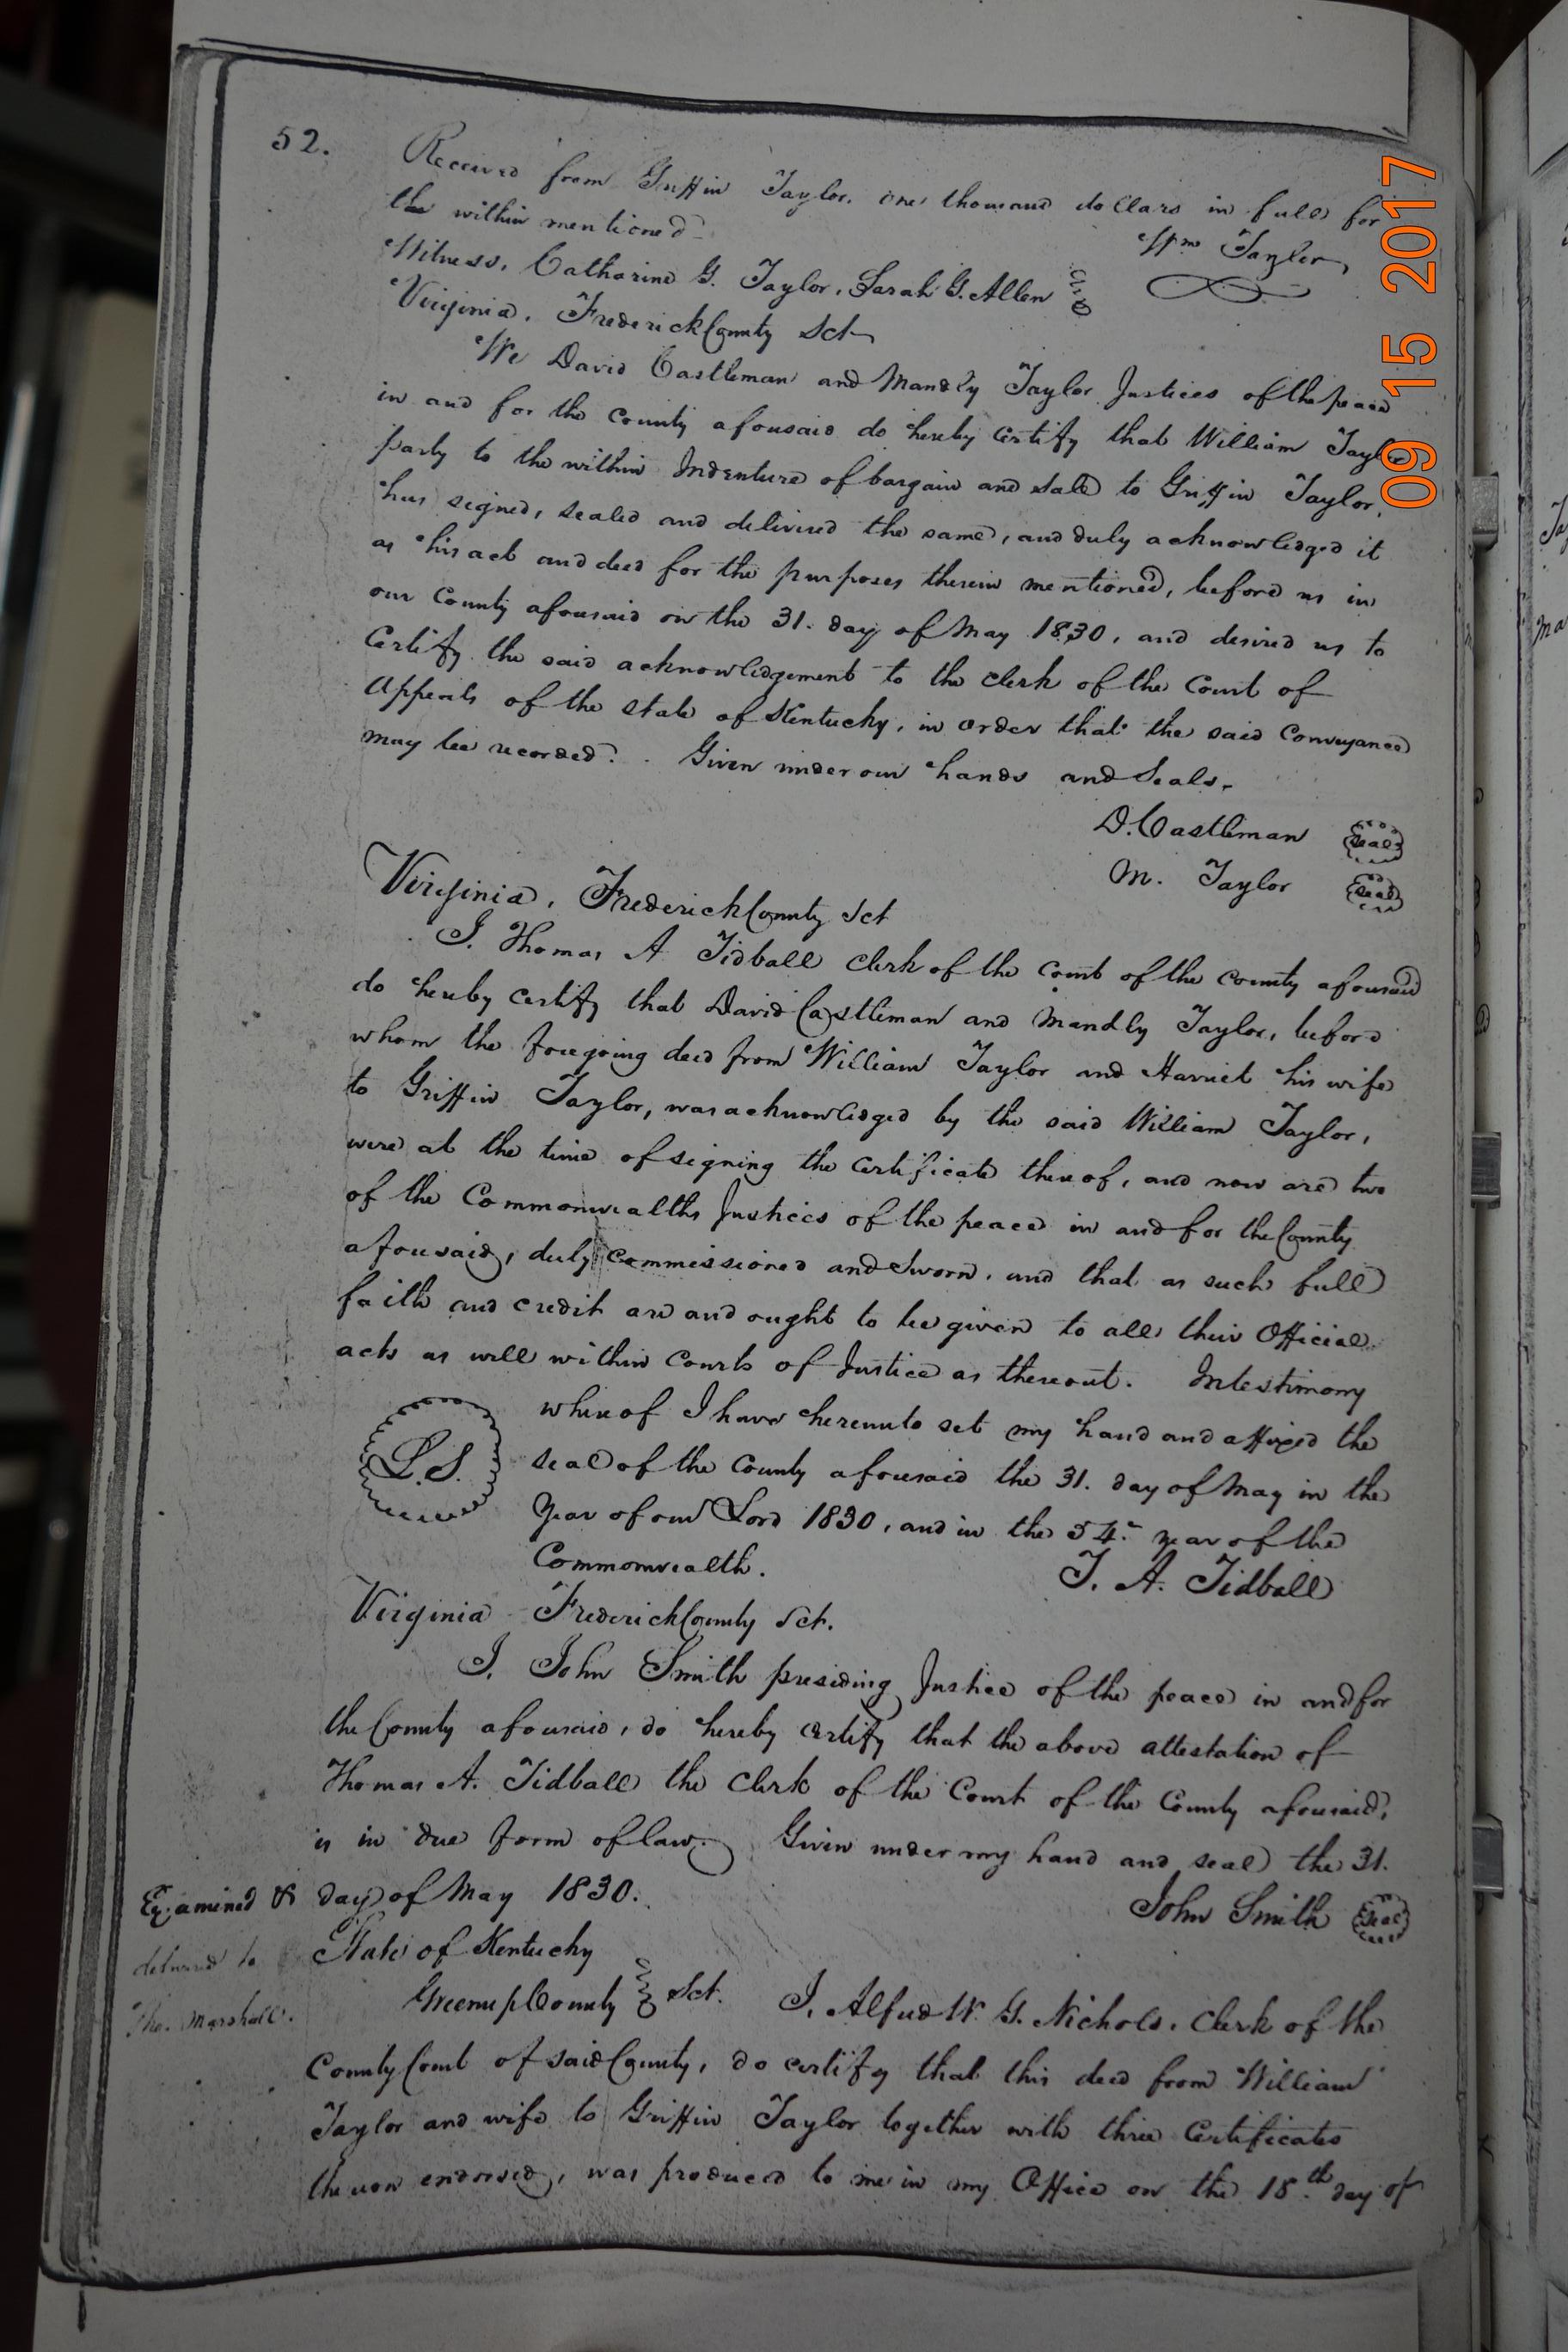 52.
Received from Griffin Taylor, one thousand dollars in full for
the within mentioned
Wm Taylor,
Witness, Catharine G. Taylor, Sarah G. Allen
Virginia, Frederick County Sct
We David Castleman and Mandly Taylor Justices of the peace
in and for the County aforesaid do hereby certify that William Taylor
party to the within Indenture of bargain and sale to Griffin Taylor,
has signed, sealed and delivered the same, and duly acknowledged it
as his act and deed for the purposes therein mentioned, before us in
our County aforesaid on the 31. day of May 1830, and desired us to
Certify the said acknowledgement to the clerk of the Court of
Appeals of the state of Kentucky, in order that the said Conveyance
may be recorded. Given under our hands and Seals.
D. Castleman Seal
M. Taylor Seal
Virginia, Frederick County Sct
I. Thomas A Tidball Clerk of the court of the county aforesaid
do hereby certify that David Castleman and Mandly Taylor, before
whom the foregoing deed from William Taylor and Harriet his wife
to Griffin Taylor, was acknowledged by the said William Taylor,
were at the time of signing the certificate thereof, and now are two
of the Commonwealths Justices of the peace in and for the County
aforesaid, duly commissioned and Sworn, and that as such full
faith and credit are and ought to be given to all their Official
acts as well within Courts of Justice as thereout. In testimony
whereof I have hereunto set my hand and affixed the
L.S.
seal of the County aforesaid the 31. day of May in the
Year of our Lord 1830, and in the 54th year of the
Commonwealth.
T. A. Tidball
Virginia Frederick County Sct.
I. John Smith presiding Justice of the peace in and for
the County aforesaid, do hereby certify that the above attestation of
Thomas A. Tidball the Clerk of the Court of the County aforesaid,
is in due form of law. Given under my hand and seal the 31.
day of May 1830.
John Smith Seal
Examined &
delivered to
Tho. Marshall.
State of Kentucky
Greenup County Sct. I, Alfred W. G. Nichols, Clerk of the
County Court of said County, do certify that this deed from William
Taylor and wife to Griffin Taylor together with three Certificates
thereon endorsed, was produced to me in my Office on the 18.th day of
09 15 2017